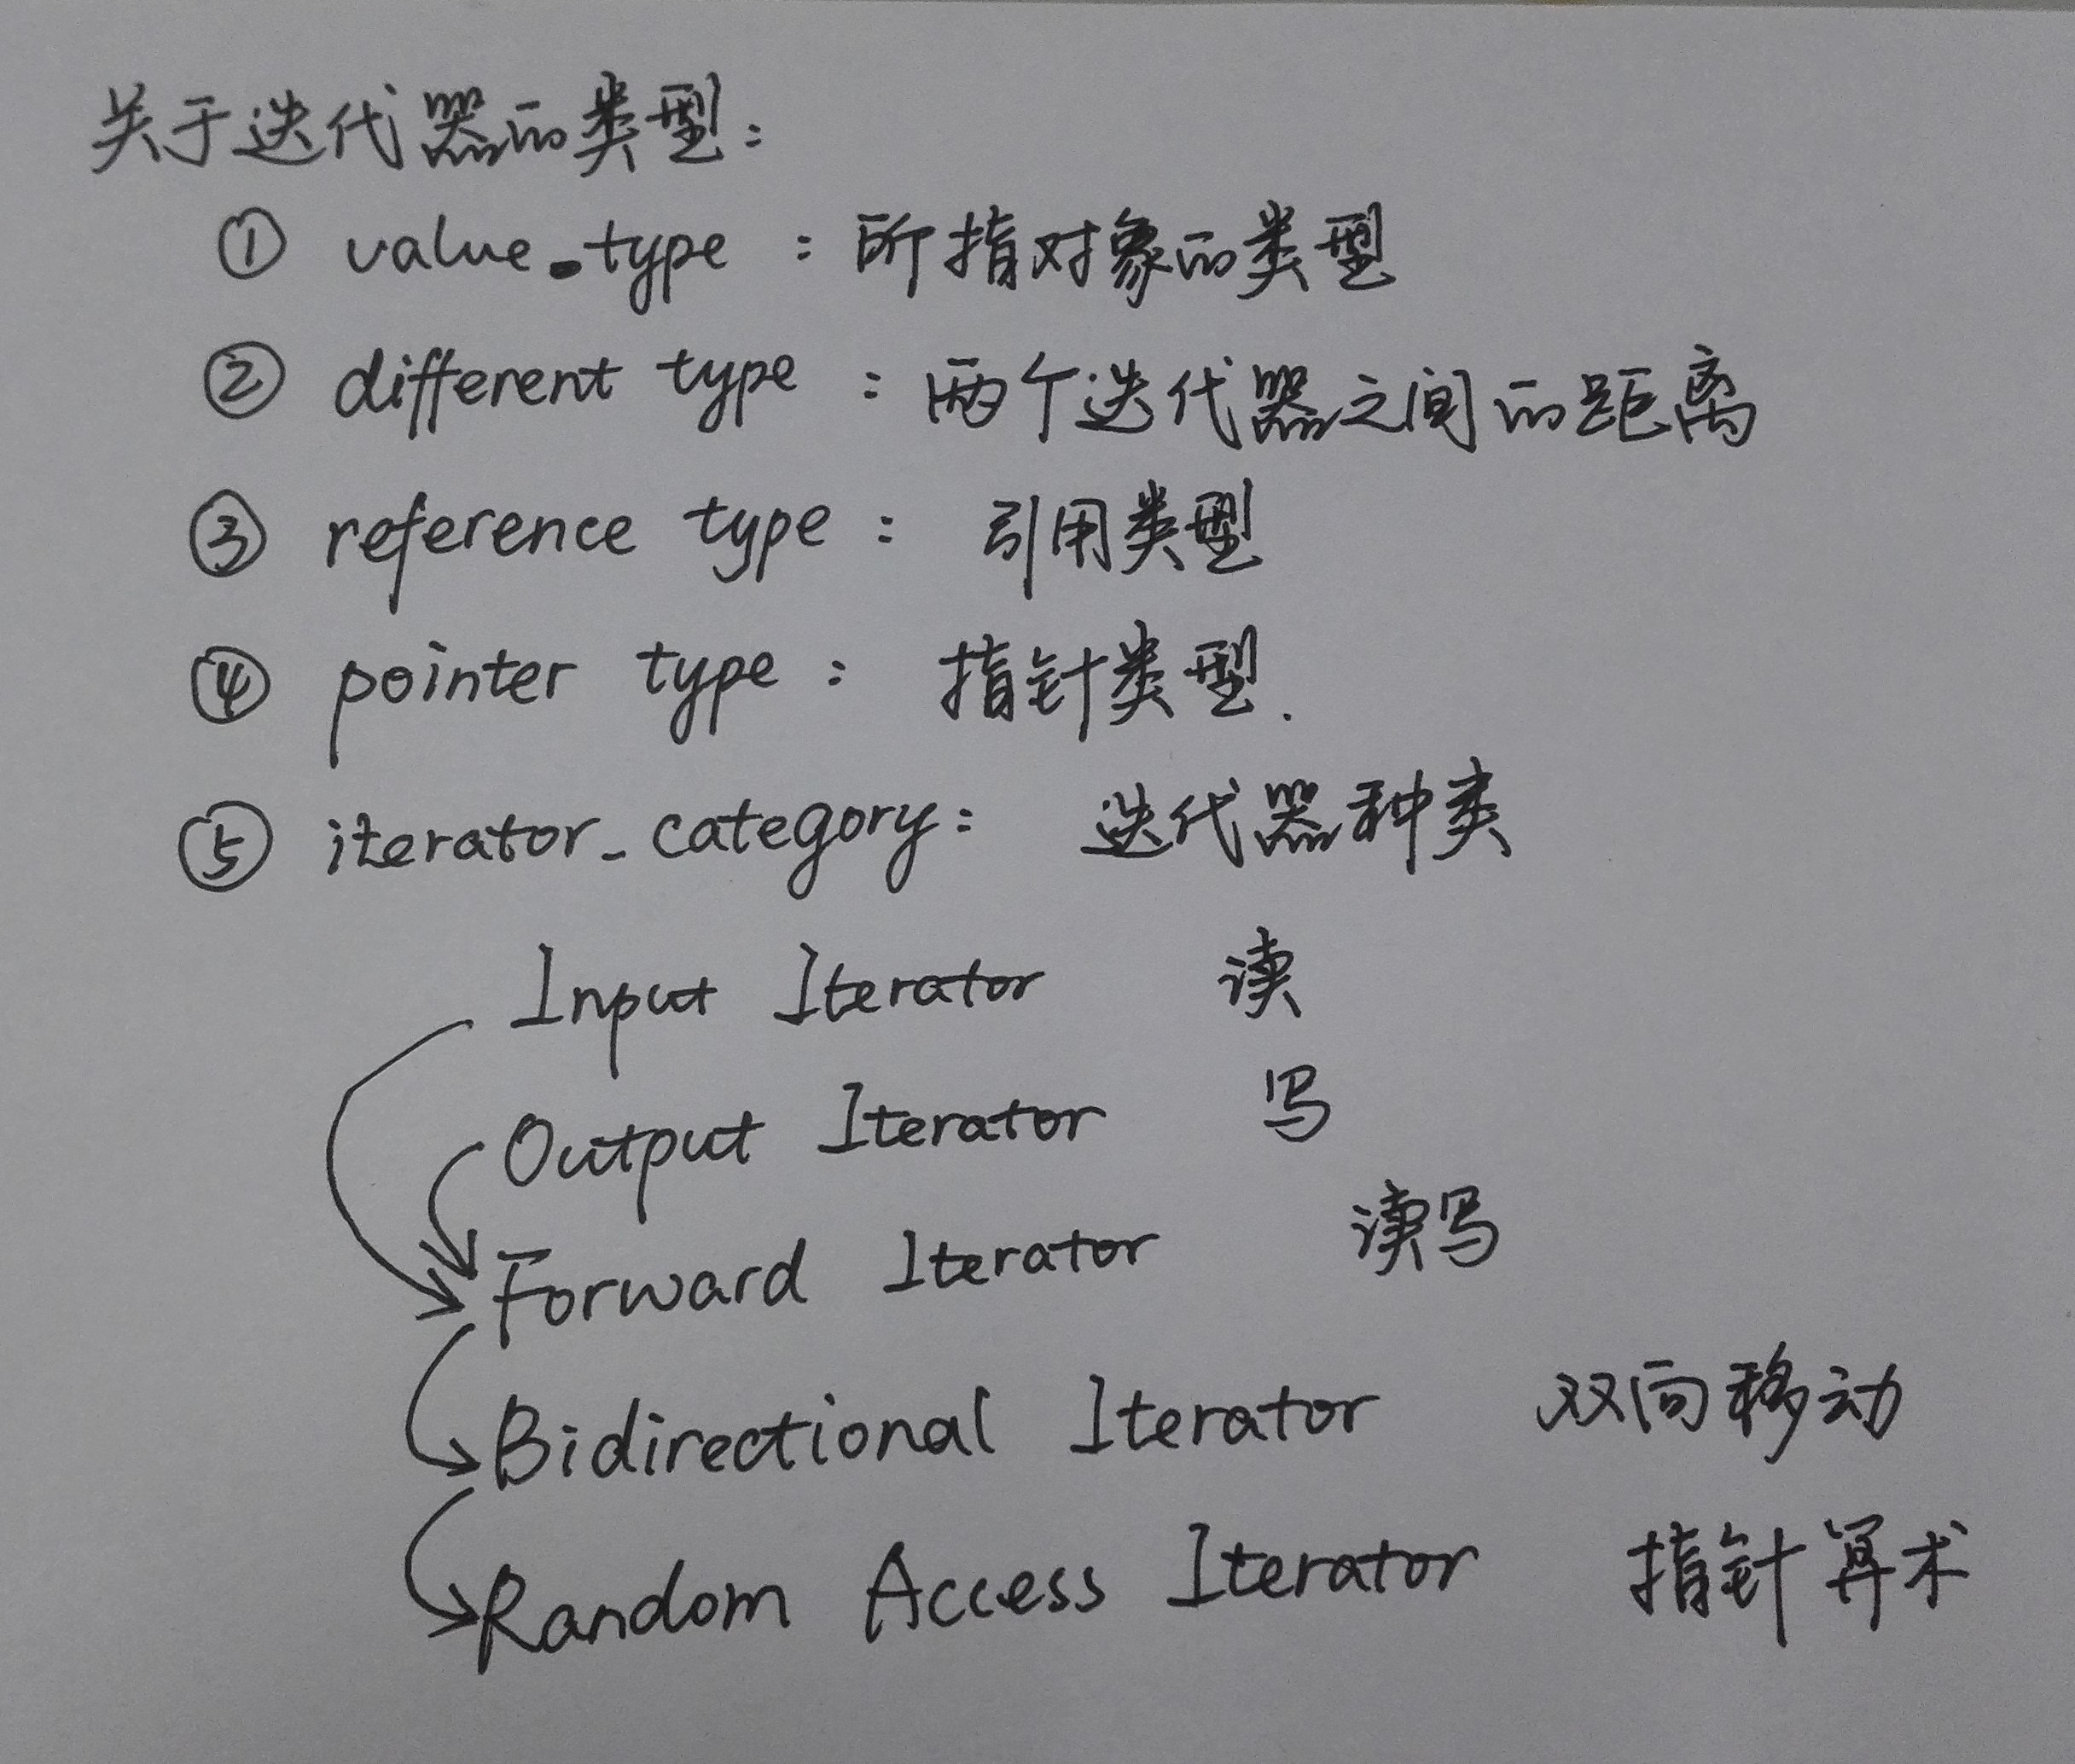 关于迭代器的类型：
① value_type：所指对象的类型
② different type：两个迭代器之间的距离
③ reference type：引用类型
④ pointer type：指针类型.
⑤ iterator_category：迭代器种类
Input Iterator 读
Output Iterator 写
Forward Iterator 读写
Bidirectional Iterator 双向移动
Random Access Iterator 指针算术